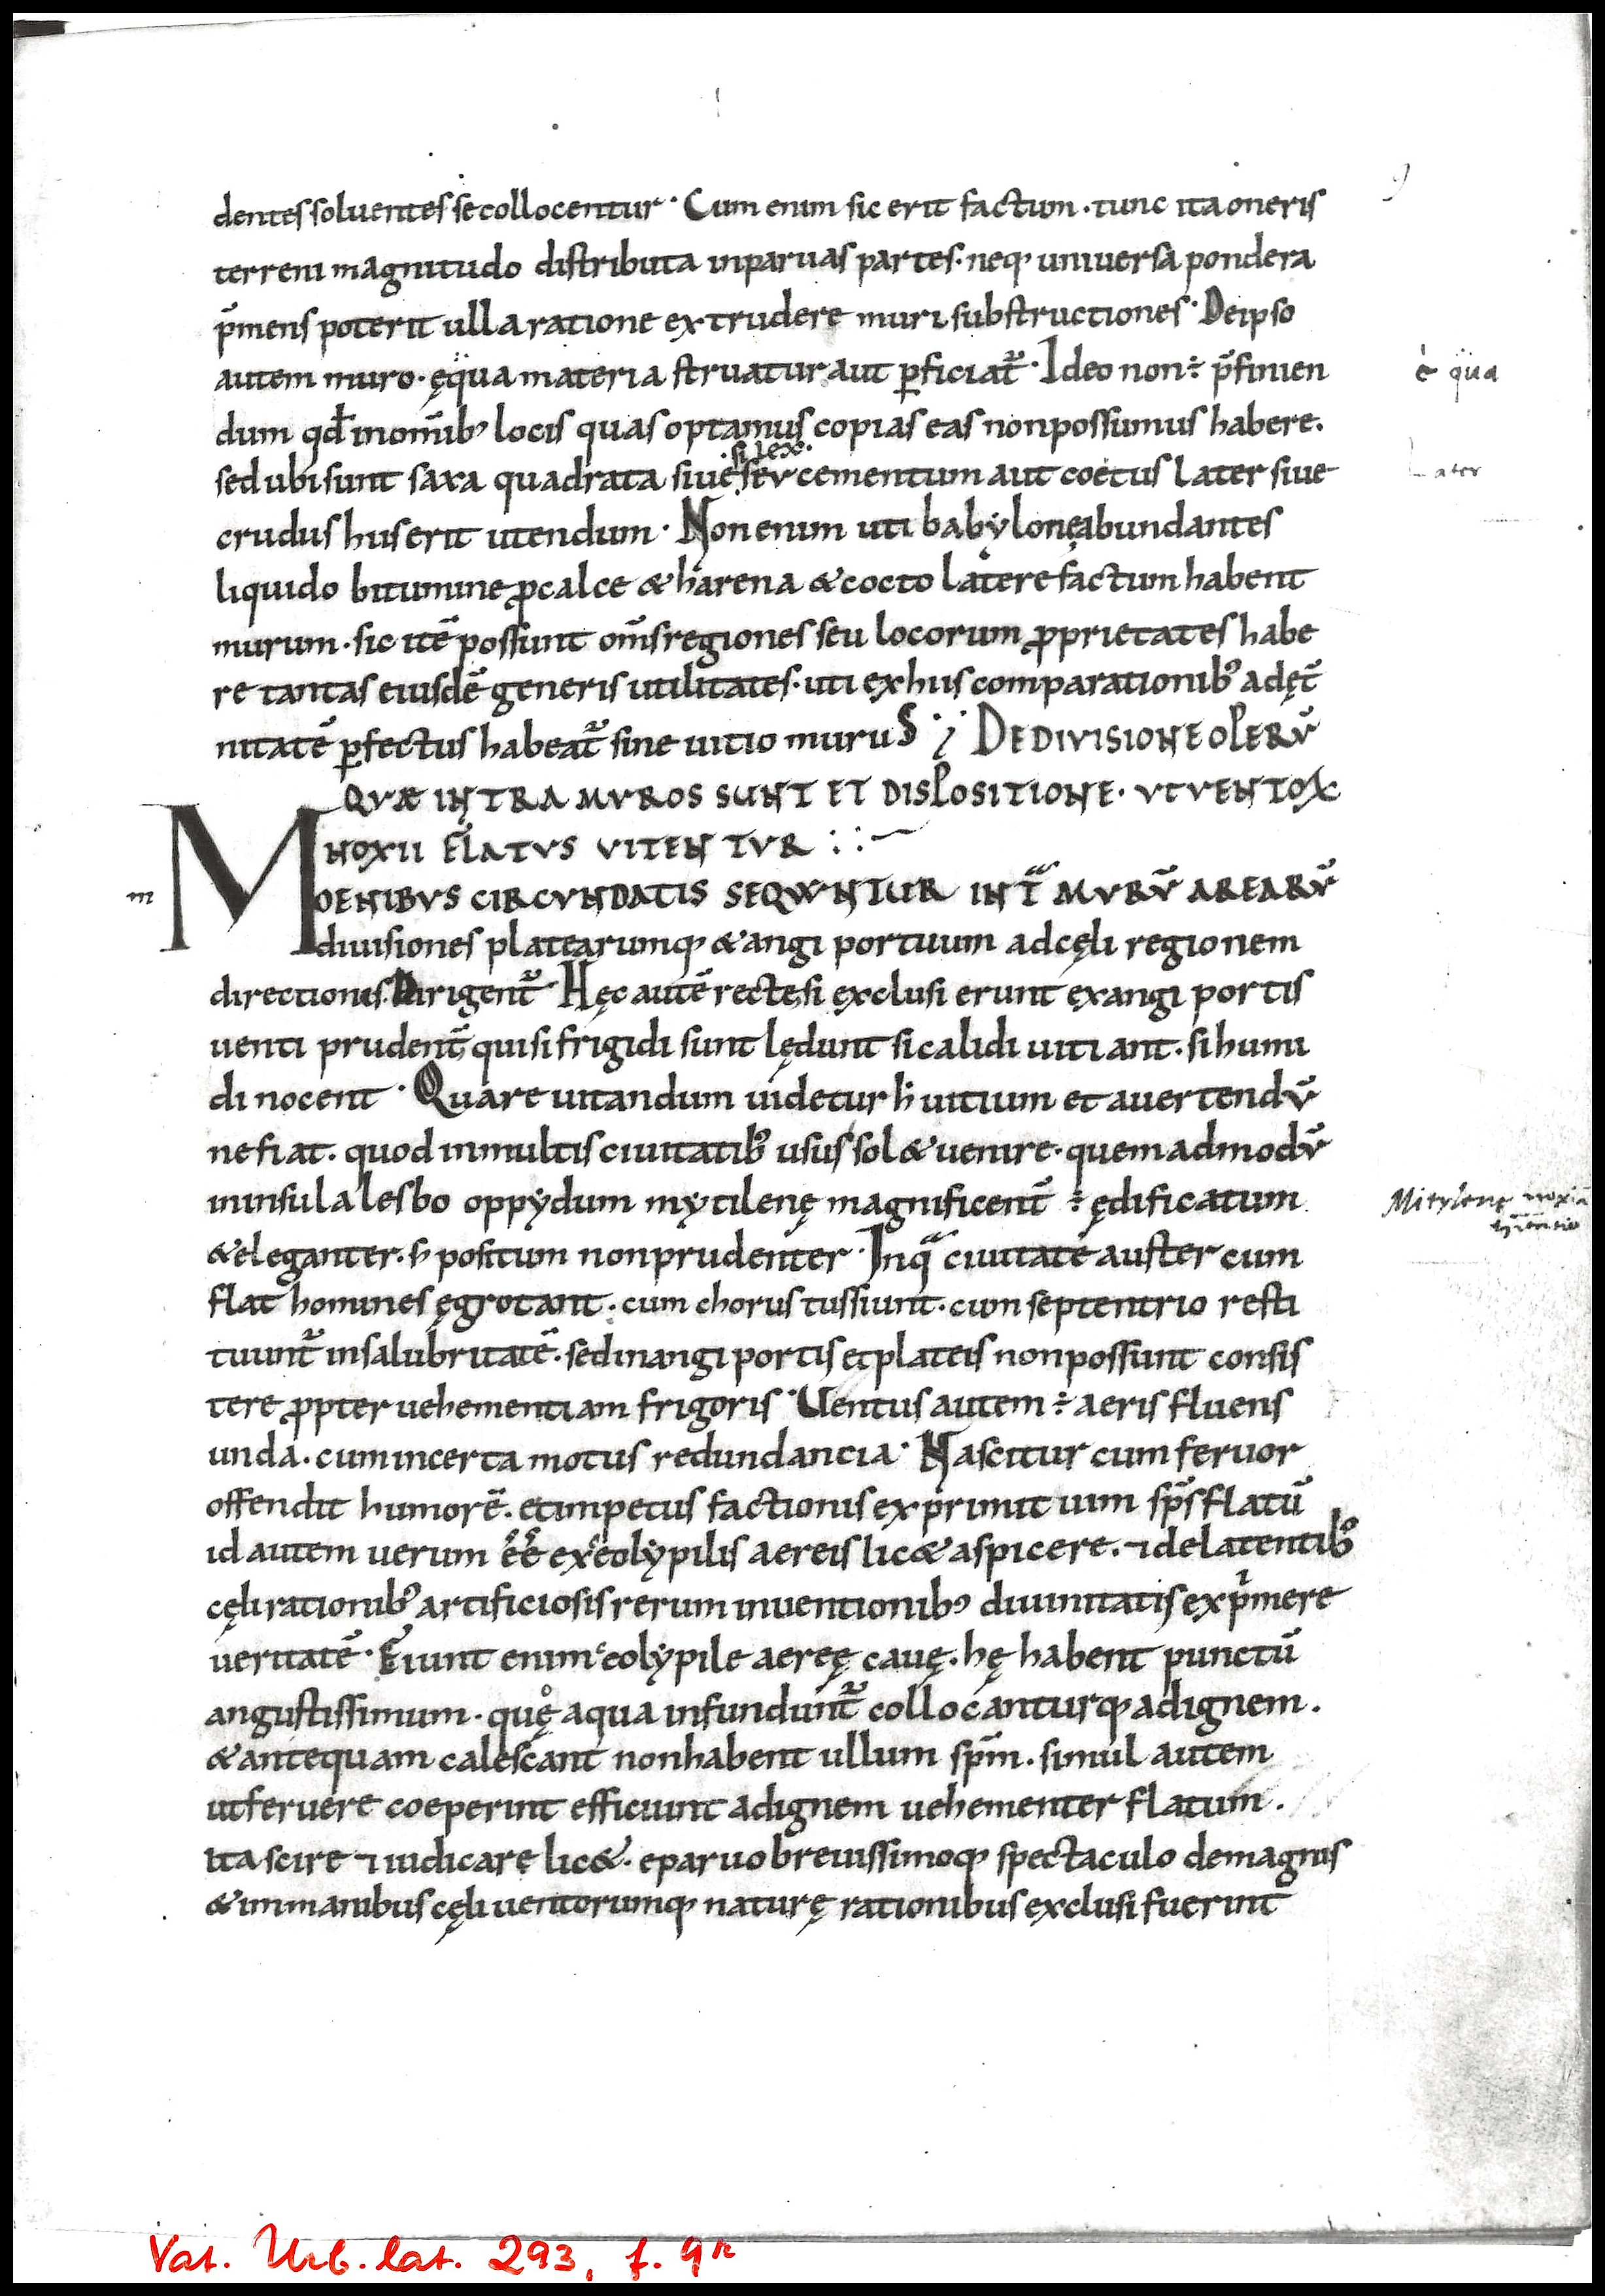 9
dentes soluentes se collocentur · Cum enim sic erit factum · tunc ita oneris
terreni magnitudo distributa inparuas partes · neq; uniuersa pondera
p̄mens poterit ulla ratione extrudere muri substructiones · Deipso
autem muro · ęqua materia struatur aut ꝑficiat᷑ · Ideo non ÷ p̄finien
è qua
dum qđ inomīb; locis quas optamus copias eas nonpossumus habere ·
· silex ·
sed ubi sunt saxa quadrata siue seu cementum aut coctus later siue
Later
crudus huis erit utendum · Non enim uti babylonę abundantes
liquido bitumine ꝓcalce & harena & cocto latere factum habent
murum · sic itē possunt om̄s regiones seu locorum ꝓprietates habe
re tantas eiusdē generis utilitates · uti ex huis comparationib; adęt̄
nitatē ꝑfectus habeat᷑ sine uitio muruS ; DE DIVISIONE OPERŪ
QVÆ INTRA MVROS SUNT ET DISPOSITIONE · VT VENTOꝝ
NOXII FLATVS VITENTVR : : ~
m
MOENIBVS CIRCVNDATIS SEQVVNTUR INTᵃ MVRŪ AREARŪ
diuisiones platearumq; & angi portuum adcęli regionem
directionis Dirigent᷑ · Hęc autē recte si exclusi erunt exangi portis
uenti prudent̄ qui si frigidi sunt lędunt si calidi uitiant · si humi
di nocent · Quare uitandum uidetur h̄ uitium et auertendū
nefiat · quod inmultis ciuitatib; usus sol& uenire · quemadmodū
ininsula lesbo oppydum mytilenę magnificent̄ ÷ ędificatum
Mitylene noxia
& eleganter · s; positum nonprudenter · Inqᵃ ciuitate auster cum
flat homines ęgrotant · cum chorus tussiunt · cum septentrio resti
tuunt᷑ insalubritatē · sed inangi portis et plateis nonpossunt consis
tere ꝓpter uehementiam frigoris · Uentus autem ÷ aeris fluens
unda · cum incerta motus redundancia · Nascitur cum feruor
offendit humorē · et impetus factionis exprimit uim sp̄s flatū
id autem uerum ēē ex eolypilis aereis lic& aspicere · ⁊ delatentib;
cęli rationib; artificiosis rerum inuentionib; diuinitatis exp̄mere
ueritatē · Fiunt enim eolypile aereę cauę · hę habent punctū
angustissimum · quę aqua infundunt᷑ collocanturq; adignem ·
& antequam calescant nonhabent ullum sp̄m · simul autem
utferuere coeperint efficiunt adignem uehementer flatum ·
Ita scire ⁊ iudicare lic& · eparuo breuissimoq; spectaculo demagnis
& inmanibus cęli uentorumq; naturę rationibus exclusi fuerint
Vat. Urb. lat. 293, f. 9r